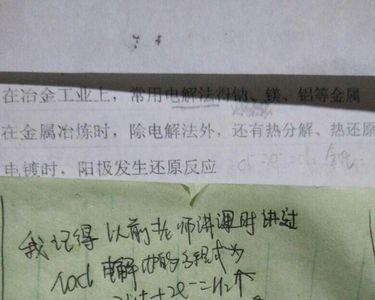 在冶金工业上，常用电解法得钠、镁、铝等金属
在金属冶炼时，除电解法外，还有热分解、热还原
电镀时，阳极发生还原反应
我记得以前老师讲课时讲过
电解 方程式为